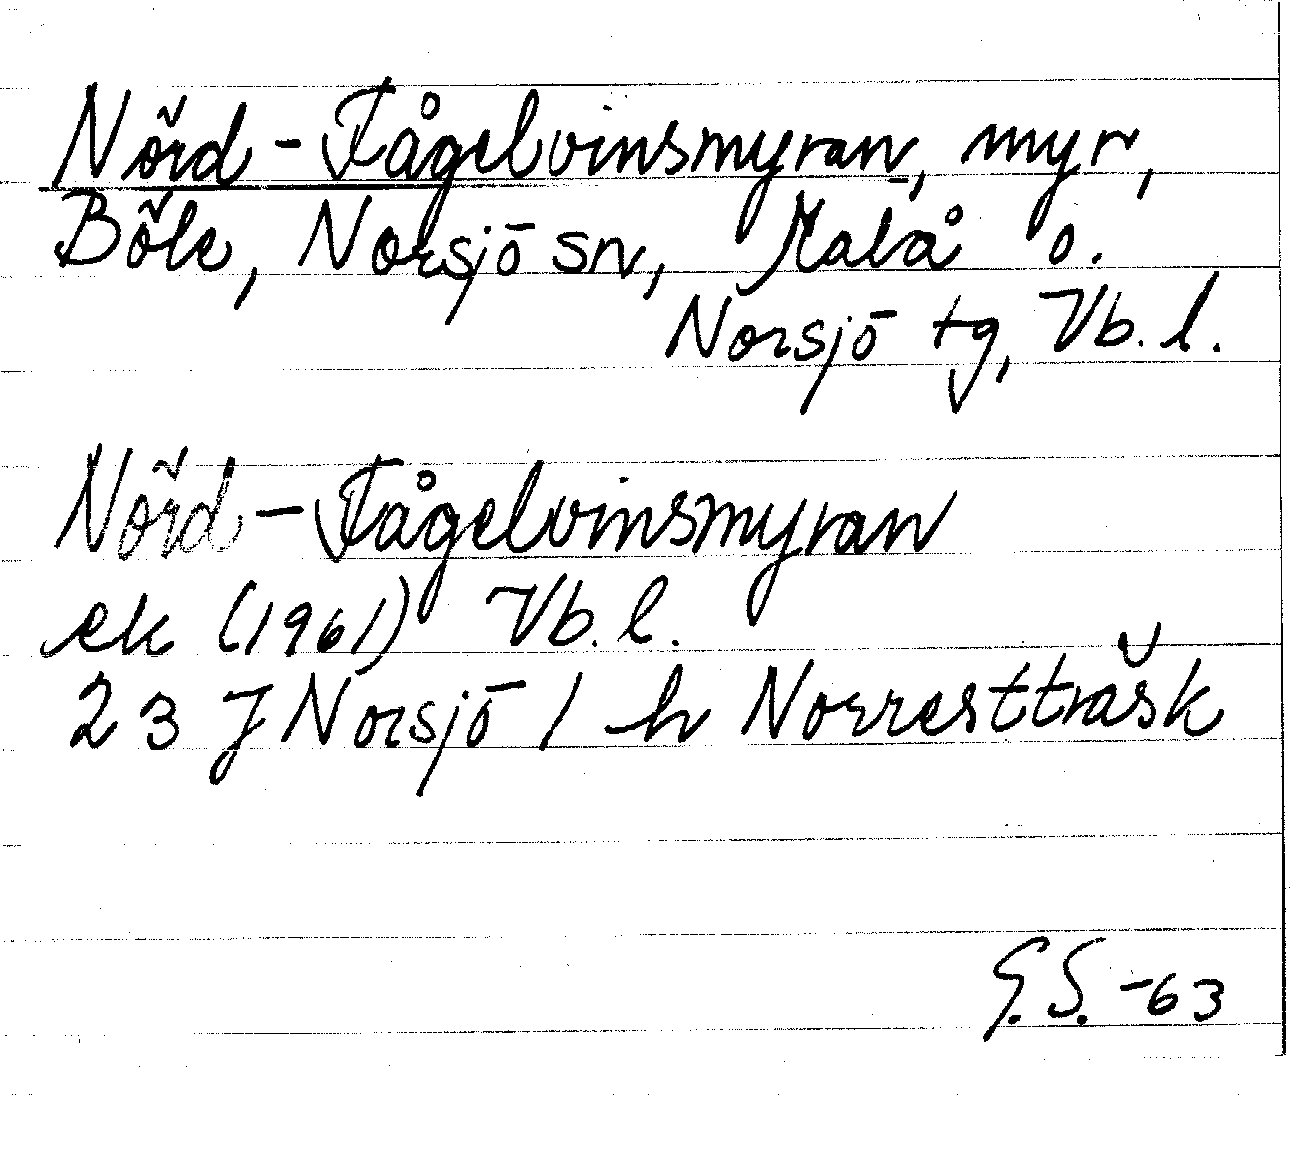 Nörd-Fågelvinsmyran, myr,
Böle, Norsjö sn, Malå o.
Norsjö tg, Vb. l.
Nörd-Fågelvinsmyran
ek (1961) Vb. l.
23 J Norsjö / h Norrestträsk
G.S. -63